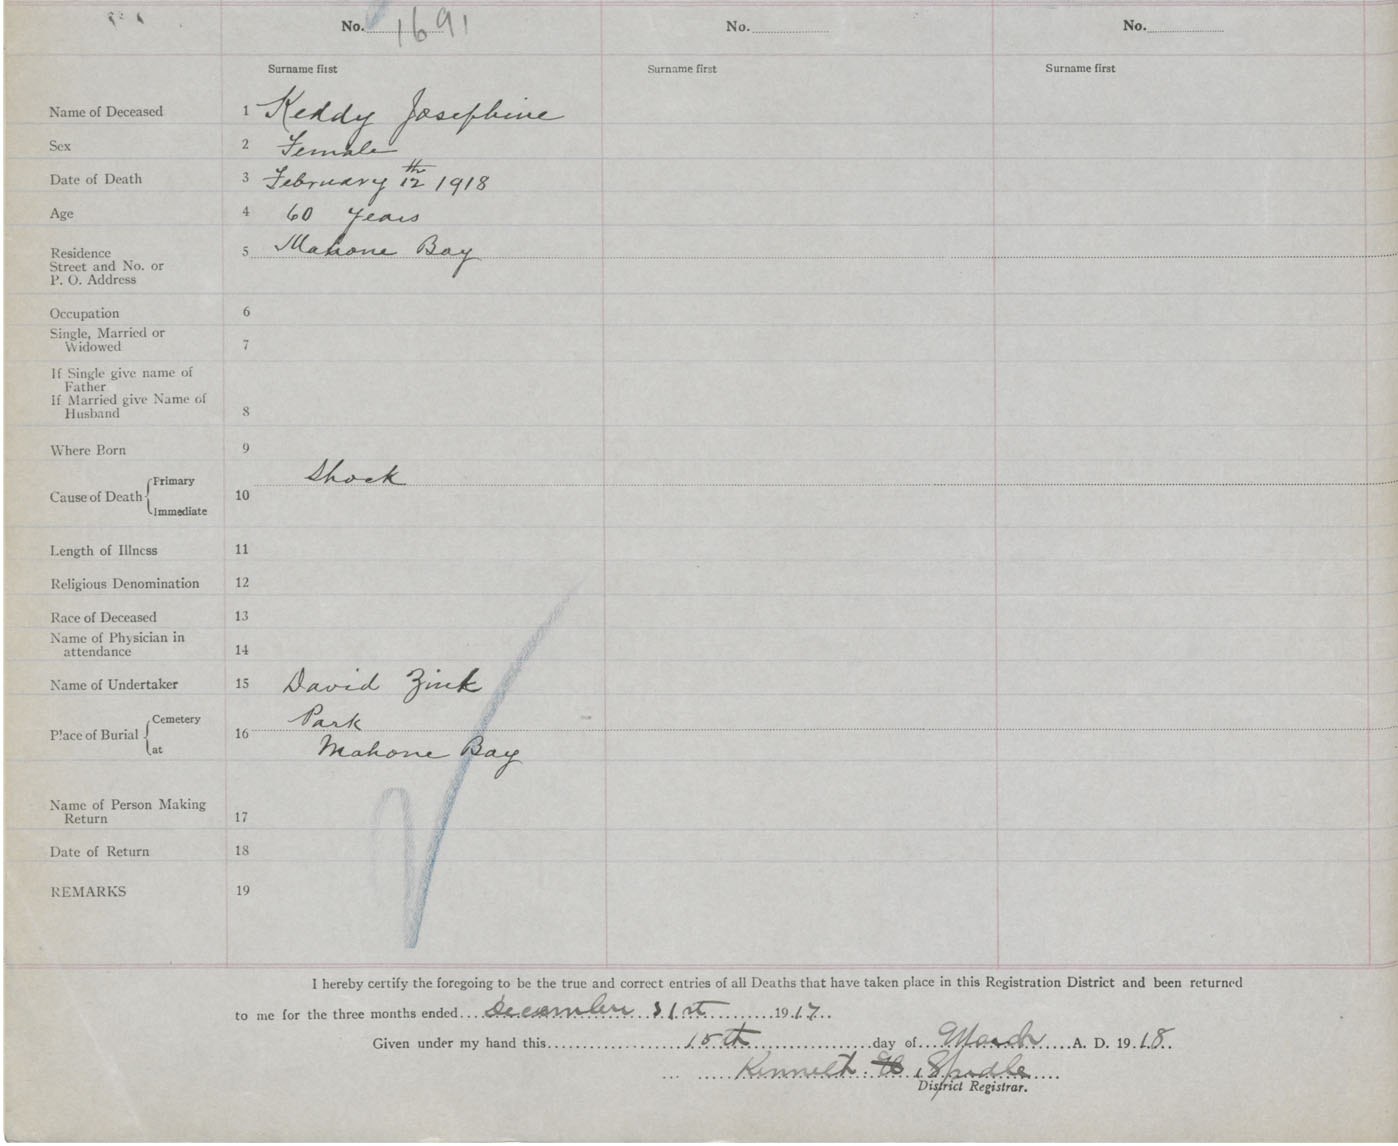 No. 1691 No. No.
Surname first Surname first Surname first
Name of Deceased 1 Keddy Josephine
Sex 2 Female
Date of Death 3 February 12th 1918
Age 4 60 years
Residence 5 Mahone Bay
Street and No. or
P. O. Address
Occupation 6
Single, Married or
Widowed 7
If Single give name of
Father
If Married give Name of
Husband 8
Where Born 9
Primary Shock
Cause of Death 10
Immediate
Length of Illness 11
Religious Denomination 12
Race of Deceased 13
Name of Physician in
attendance 14
Name of Undertaker 15 David Zink
Cemetery Park
Place of Burial 16
at Mahone Bay
Name of Person Making
Return 17
Date of Return 18
REMARKS 19
I hereby certify the foregoing to be the true and correct entries of all Deaths that have taken place in this Registration District and been returned
to me for the three months ended December 31st 1917
Given under my hand this 15th day of March A. D. 1918
Kenneth Spidle
District Registrar.